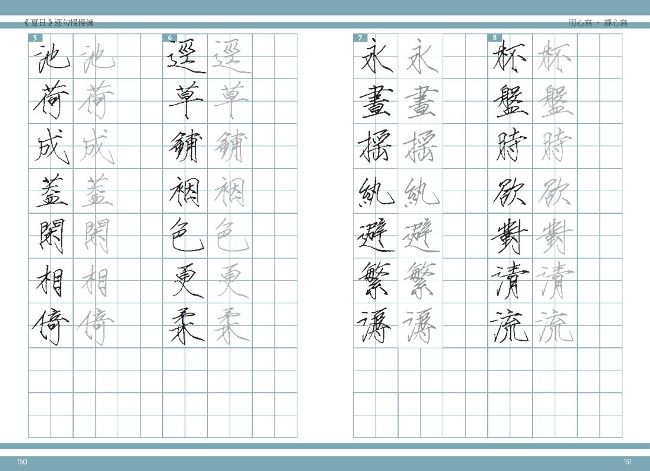 《夏日》逐句慢慢練
用心寫・靜心寫
5
池荷成蓋閑相倚
池荷成蓋閑相倚
6
逕草鋪裀色更柔
逕草鋪裀色更柔
7
永晝搖紈避繁溽
永晝搖紈避繁溽
8
杯盤時欲對清流
杯盤時欲對清流
150
151